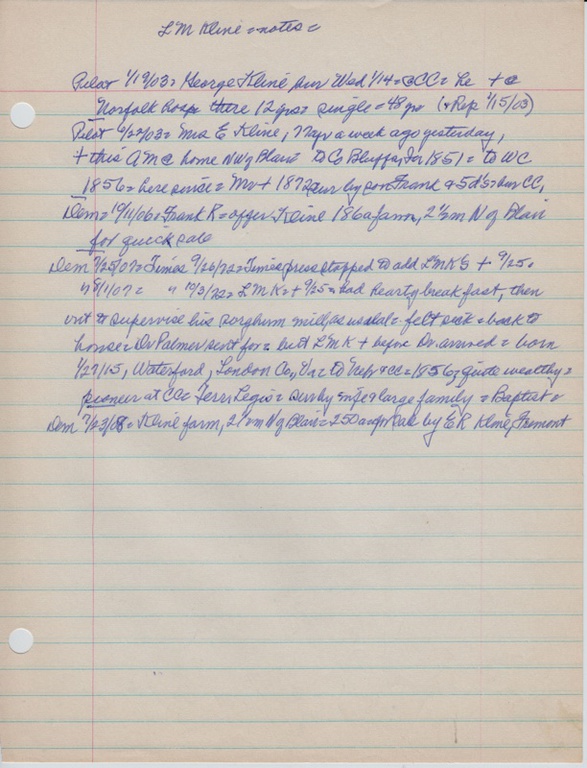 L M Kline = notes =
Pilot 1/19/03 = George Kline bur Wed 1/14 = CC = he + @
Norfolk hosp there 12 yrs = single = 48 yo (+ Rep 1/15/03)
Pilot 9/22/03 = Mrs E Kline, 77 yr a week ago yesterday,
+ this AM @ home NW of Blair = to C Bluffs, Ia 1851 = to WC
1856 = here since = Mr + 1872 = sur by son Frank & 5 d's = bur CC,
Dem = 10/11/06 = Frank R = offer Kline 186a farm, 2½ m N of Blair
for quick sale
Dem 9/25/07 = Times 9/26/72 = Times press stopped to add LMK's + 9/25 =
" 8/1/07 = " 10/3/72 = L M K = + 9/25 = had hearty breakfast, then
out to supervise his sorghum mill, as usual = felt sick = back to
house = Dr Palmer sent for = but L M K + before Dr. arrived = born
1/27/15, Waterford, Loudon Co, Va = to Neb & CC = 1856 = quite wealthy =
pioneer at CC = Terr. Legis = sur by wife & large family = Baptist =
Dem 7/23/08 = Kline farm, 2½ m N of Blair = 250 a for sale by E R Kline, Fremont